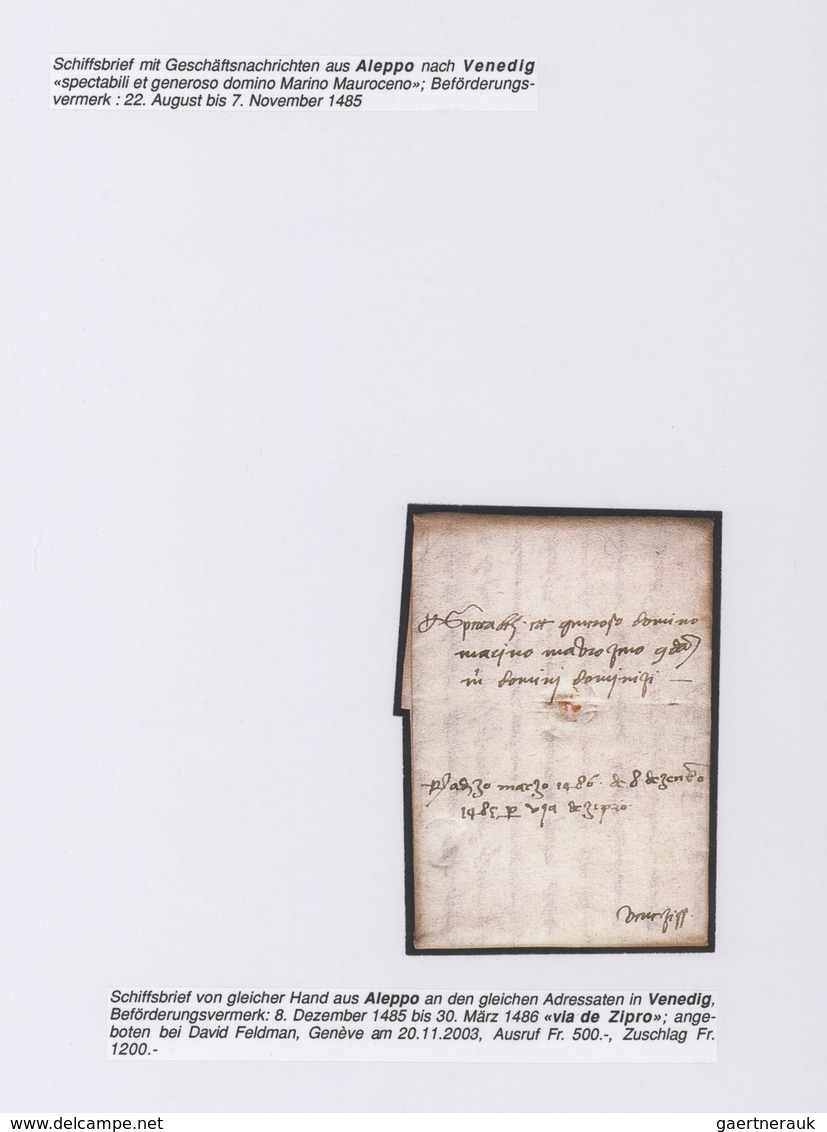 Schiffsbrief mit Geschäftsnachrichten aus Aleppo nach Venedig
«spectabili et generoso domino Marino Mauroceno»; Beförderungs-
vermerk : 22. August bis 7. November 1485
Spectabili et generoso domino
marino
domini dominizi
adi 30 marzo 1486 de 8 dezenbro
1485 p via de zipro
Schiffsbrief von gleicher Hand aus Aleppo an den gleichen Adressaten in Venedig,
Beförderungsvermerk: 8. Dezember 1485 bis 30. März 1486 «via de Zipro»; ange-
boten bei David Feldman, Genève am 20.11.2003, Ausruf Fr. 500.-, Zuschlag Fr.
1200.-
www.delcampe.net
gaertnerauk